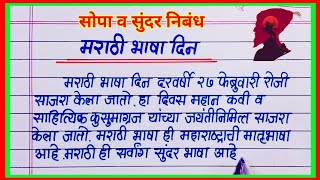 सोपा व सुंदर निबंध
मराठी भाषा दिन
मराठी भाषा दिन दरवर्षी २७ फेब्रुवारी रोजी
साजरा केला जातो. हा दिवस महान कवी व
साहित्यिक कुसुमाग्रज यांच्या जयंतीनिमित्त साजरा
केला जातो. मराठी भाषा ही महाराष्ट्राची मातृभाषा
आहे. मराठी ही सर्वांग सुंदर भाषा आहे